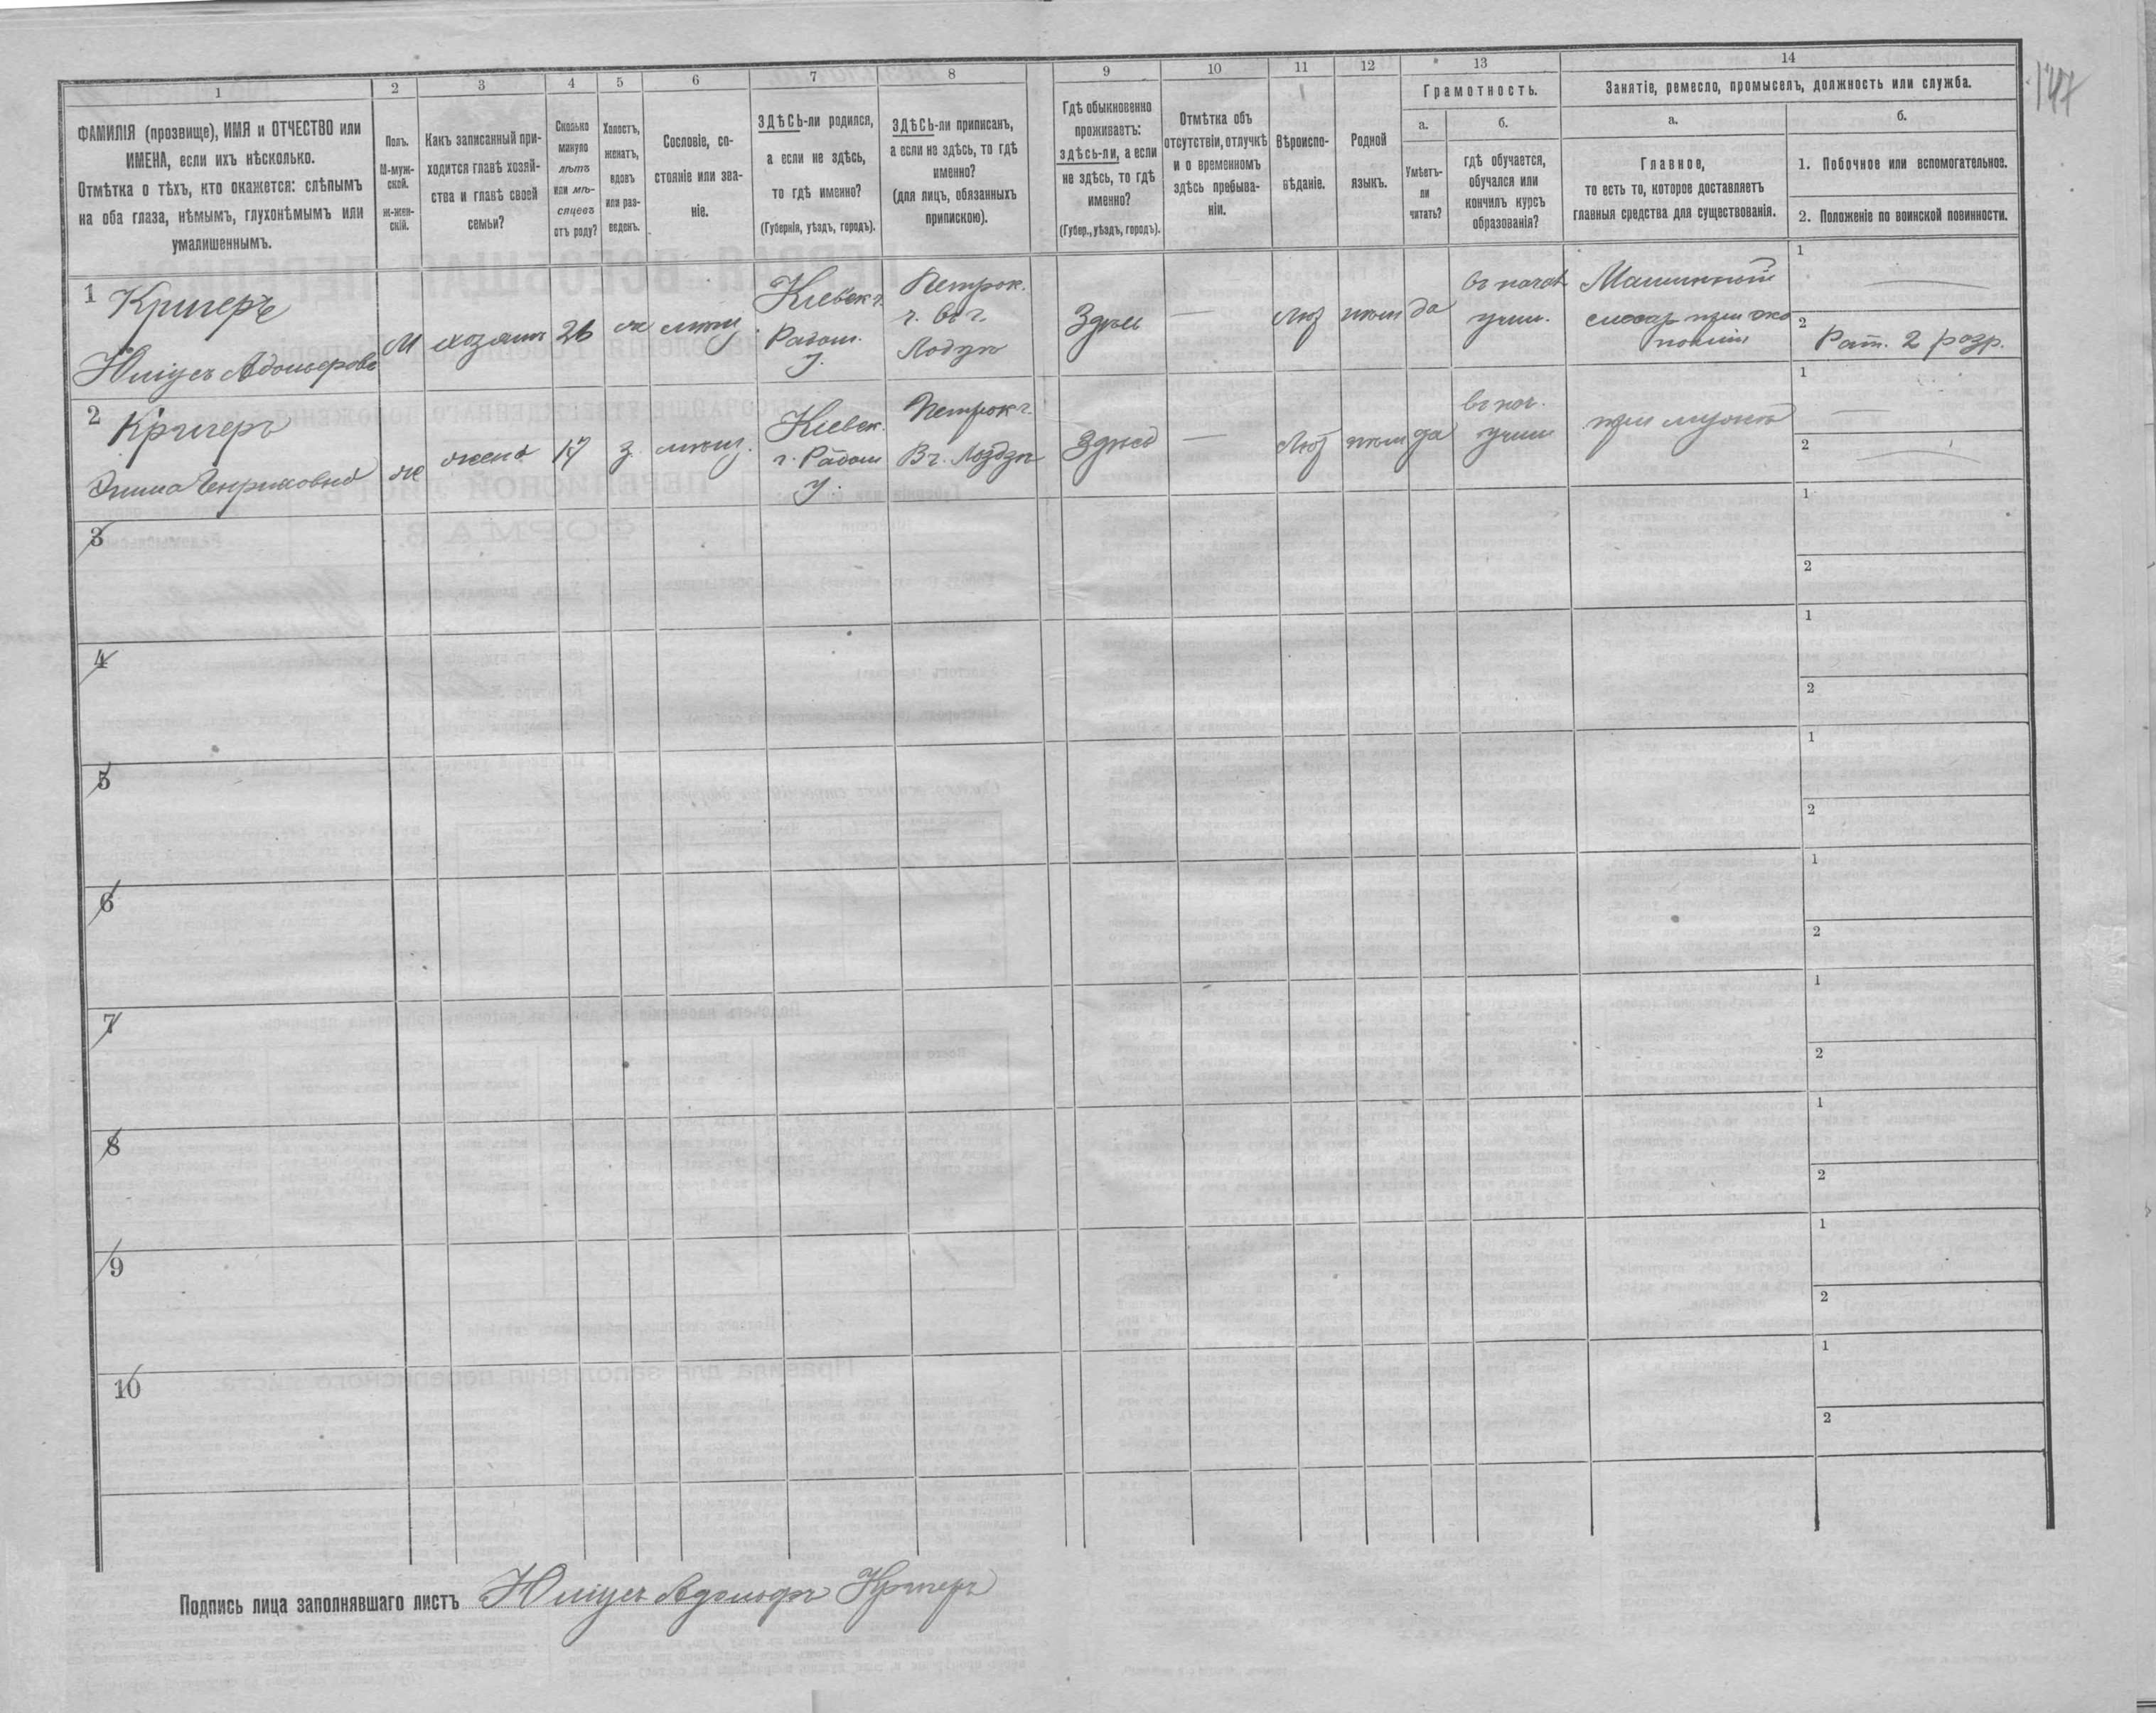 147
1
2
3
4
5
6
7
8
9
10
11
12
13
14
ФАМИЛІЯ (прозвище), ИМЯ и ОТЧЕСТВО или
ИМЕНА, если ихъ нѣсколько.
Отмѣтка о тѣхъ, кто окажется: слѣпымъ
на оба глаза, нѣмымъ, глухонѣмымъ или
умалишеннымъ.
Полъ.
М-муж-
ской.
Ж-жен-
скій.
Какъ записанный при-
ходится главѣ хозяй-
ства и главѣ своей
семьи?
Сколько
минуло
лѣтъ
или мѣ-
сяцевъ
отъ роду?
Холостъ,
женатъ,
вдовъ
или раз-
веденъ.
Сословіе, со-
стояніе или зва-
ніе.
ЗДѢСЬ-ли родился,
а если не здѣсь,
то гдѣ именно?
(Губернія, уѣздъ, городъ).
ЗДѢСЬ-ли приписанъ,
а если не здѣсь, то гдѣ
именно?
(для лицъ, обязанныхъ
припискою).
Гдѣ обыкновенно
проживаетъ:
здѣсь-ли, а если
не здѣсь, то гдѣ
именно?
(Губер., уѣздъ, городъ).
Отмѣтка объ
отсутствіи, отлучкѣ
и о временномъ
здѣсь пребыва-
ніи.
Вѣроиспо-
вѣданіе.
Родной
языкъ.
Грамотность.
а.
Умѣетъ-
ли
читать?
б.
гдѣ обучается,
обучался или
кончилъ курсъ
образованія?
Занятіе, ремесло, промыселъ, должность или служба.
а.
Главное,
то есть то, которое доставляетъ
главныя средства для существованія.
б.
1. Побочное или вспомогательное.
2. Положеніе по воинской повинности.
1
Кригеръ
Юліусъ
М
хозяинъ
26
ж
Кіевск. г.
Радом.
У.
Петрок.
г. въ г.
Лодзь
Здѣсь
—
Лют
да
въ начал
учил.
Машинный
1
—
2
Рат. 2 разр.
2
Кригеръ
Генриховна
ж
жена
17
з.
Кіевск.
г. Радом
У.
Петрок г.
В г. Лодзь
Здѣсь
—
Лют
да
въ нач.
учил
при мужѣ
1
—
2
—
3
1
2
4
1
2
5
1
2
6
1
2
7
1
2
8
1
2
9
1
2
10
1
2
Подпись лица заполнявшаго листъ Юліусъ Адольфъ Кригеръ